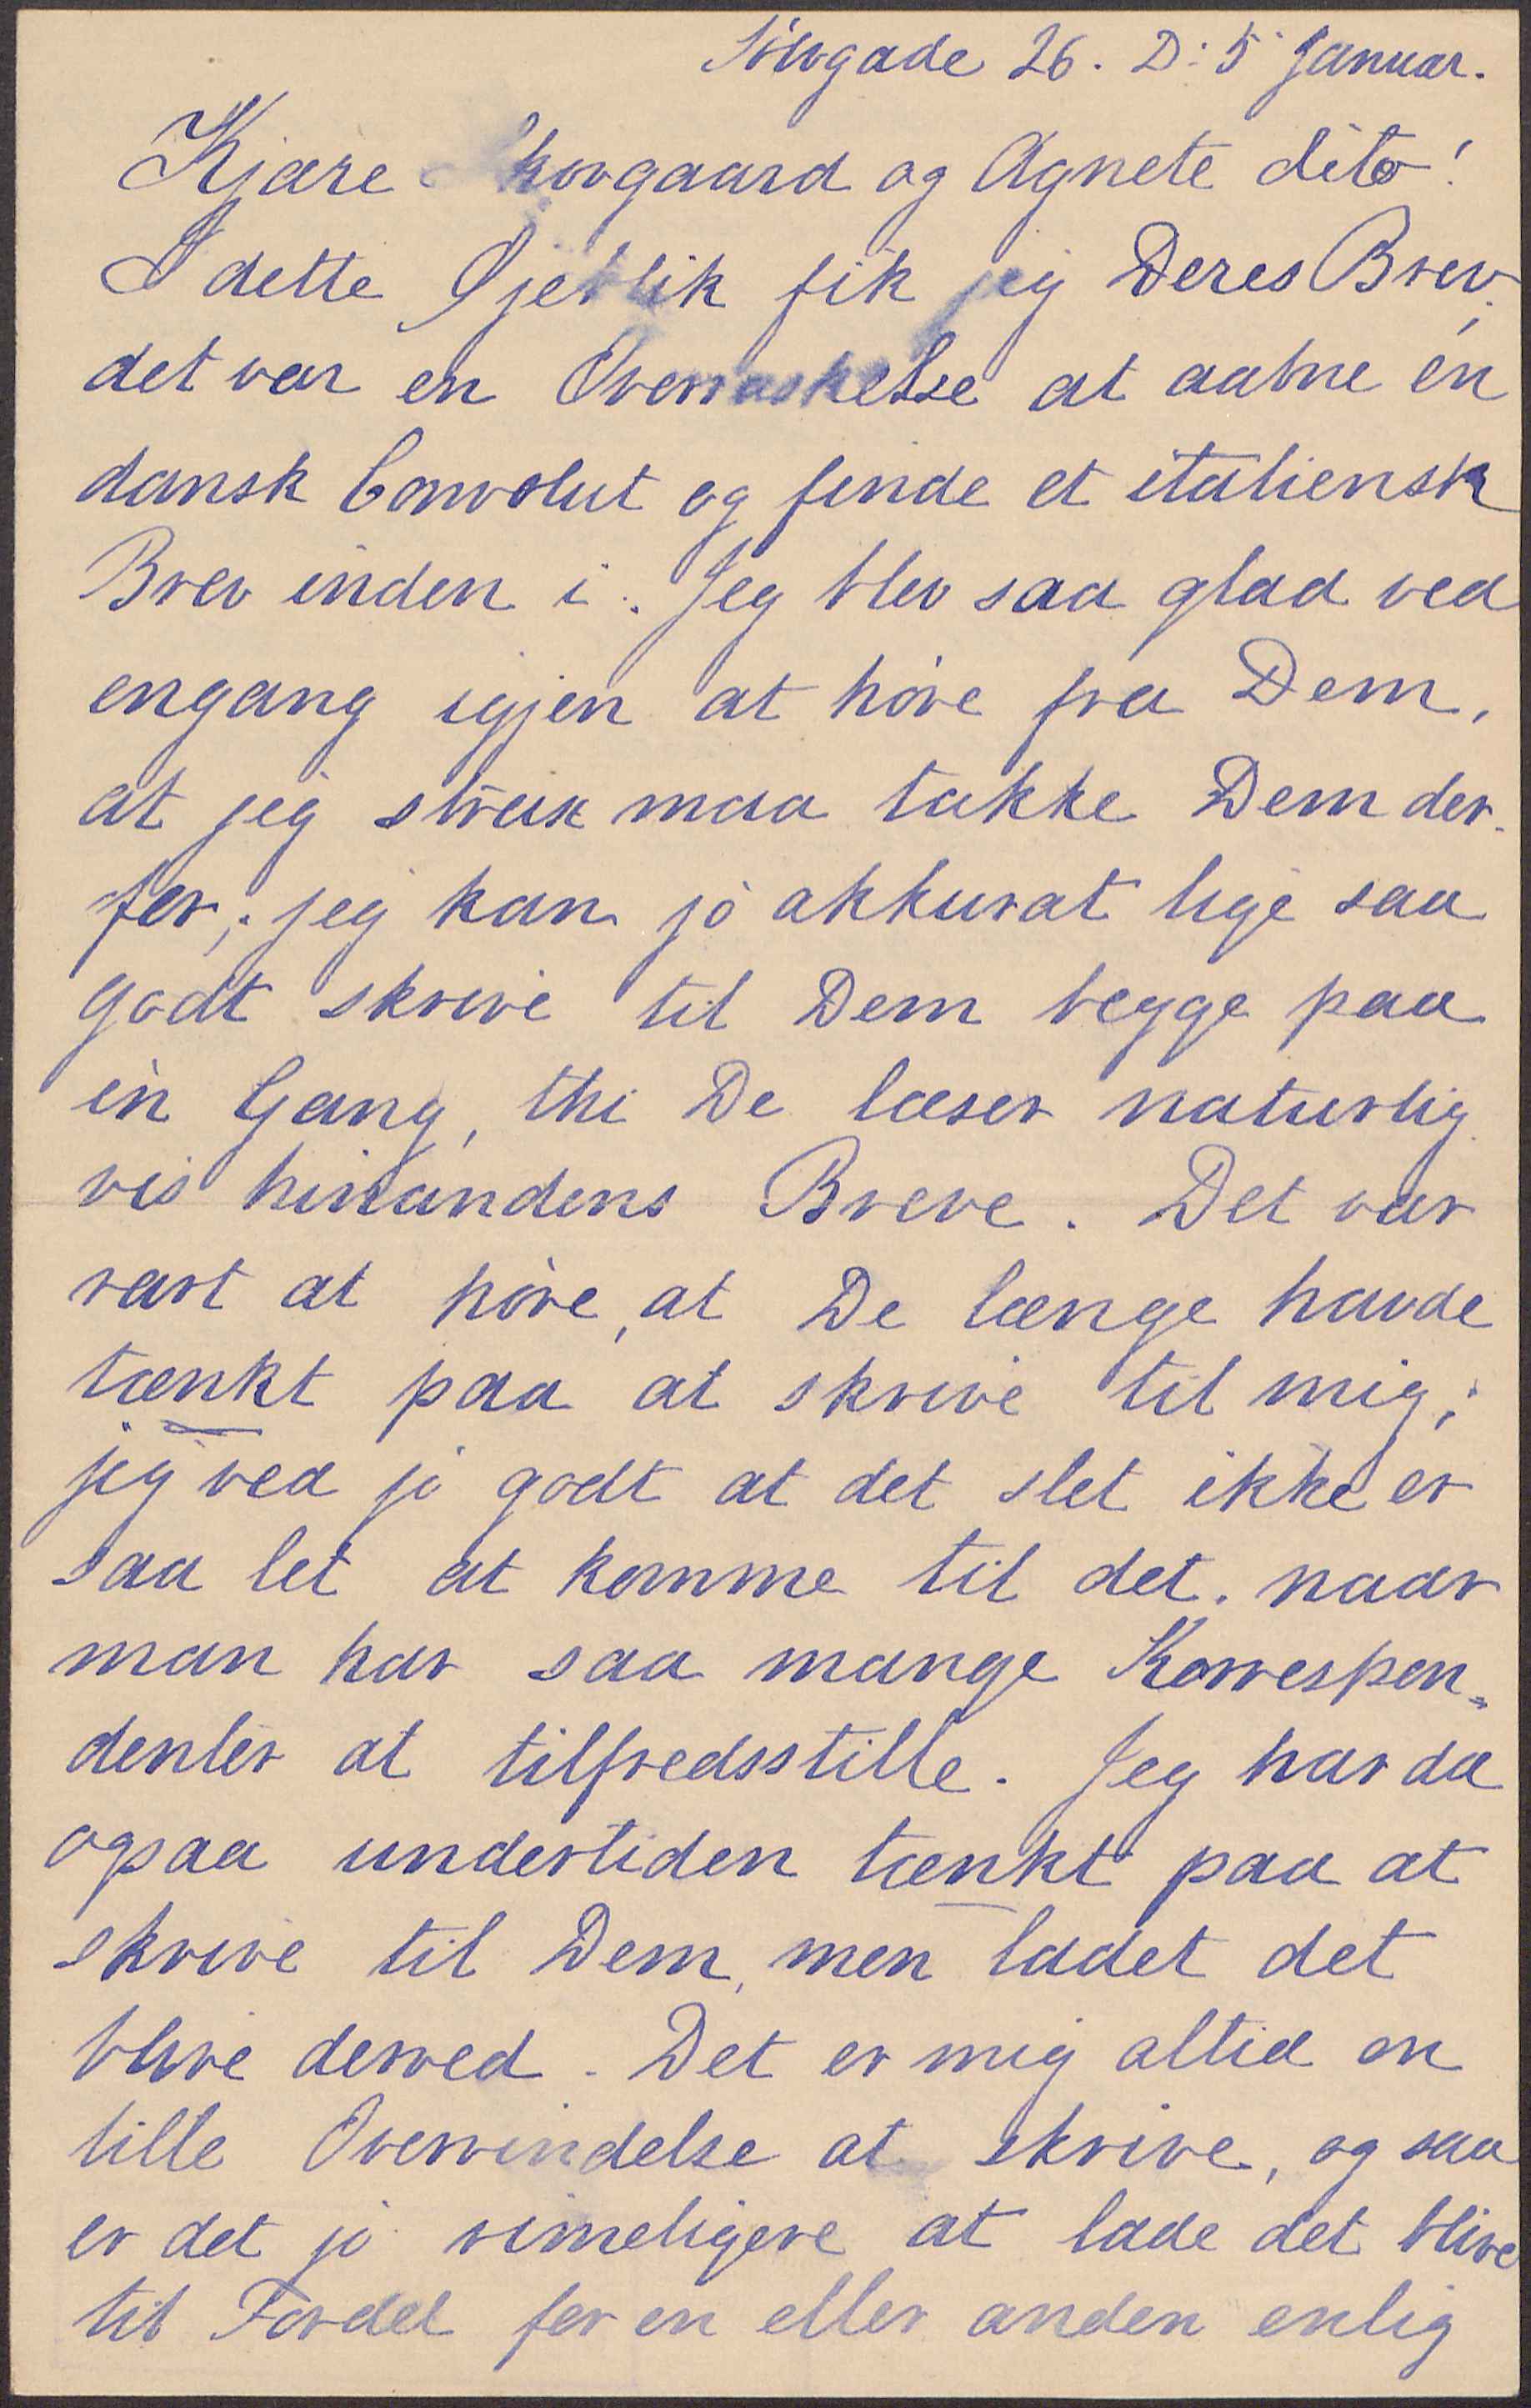 Sølvgade 26. D: 5 Januar.
Kjære Skovgaard og Agnete dito!
I dette Øjeblik fik jeg Deres Brev;
det var en Overraskelse at aabne en
dansk Convolut og finde et italiensk
Brev inden i. Jeg blev saa glad ved
engang igjen at høre fra Dem,
at jeg strax maa takke Dem der-
for; jeg kan jo akkurat lige saa
godt skrive til Dem begge paa
èn Gang, thi De læser naturlig
vis hinandens Breve. Det var
rart at høre, at De længe havde
tænkt paa at skrive til mig;
jeg ved jo godt at det slet ikke er
saa let at komme til det, naar
man har saa mange Korrespon-
denter at tilfredsstille. Jeg har da
ogsaa undertiden tænkt paa at
skrive til Dem, men ladet det
blive derved. Det er mig altid en
lille Overvindelse at skrive, og saa
er det jo rimeligere at lade det blive
til Fordel for en eller anden enlig